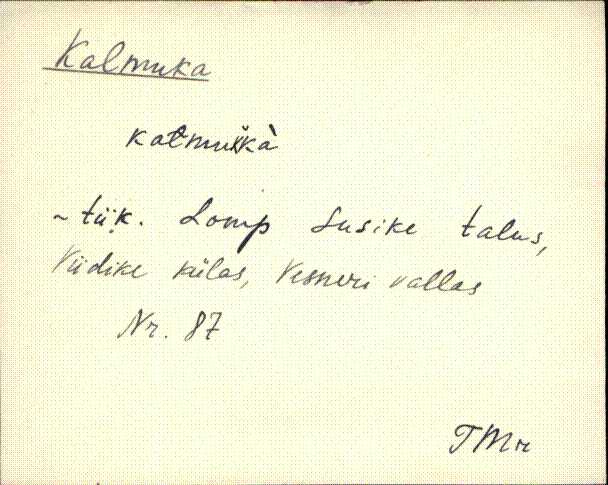 Kalmuka
kalmukà
~ tük. Lomp Susike talus,
Viidike külas, Vesneri vallas
Nr. 87
TMr